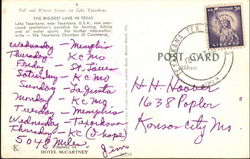 Fall and Winter Scenes on Lake Texarkana
THE BIGGEST LAKE IN TEXAS
Lake Texarkana, near Texarkana, U.S.A., new year-
round sportsmen's paradise for hunting, fishing
and all water sports. For further information,
write — The Texarkana Chamber of Commerce.
Wednesday - Memphis
Thursday - K C Mo
Friday - St
Saturday - K C Mo
Sunday - La Junta
Monday - K C Mo
Tuesday - Memphis
Wednesday - Texarkana
Thursday - K C (I hope)
5048 Miles
Jim
HOTEL McCARTNEY
TEXARKANA, TEX
POST
Address
H H Hoover
1638 Poplar
Kansas City Mo.